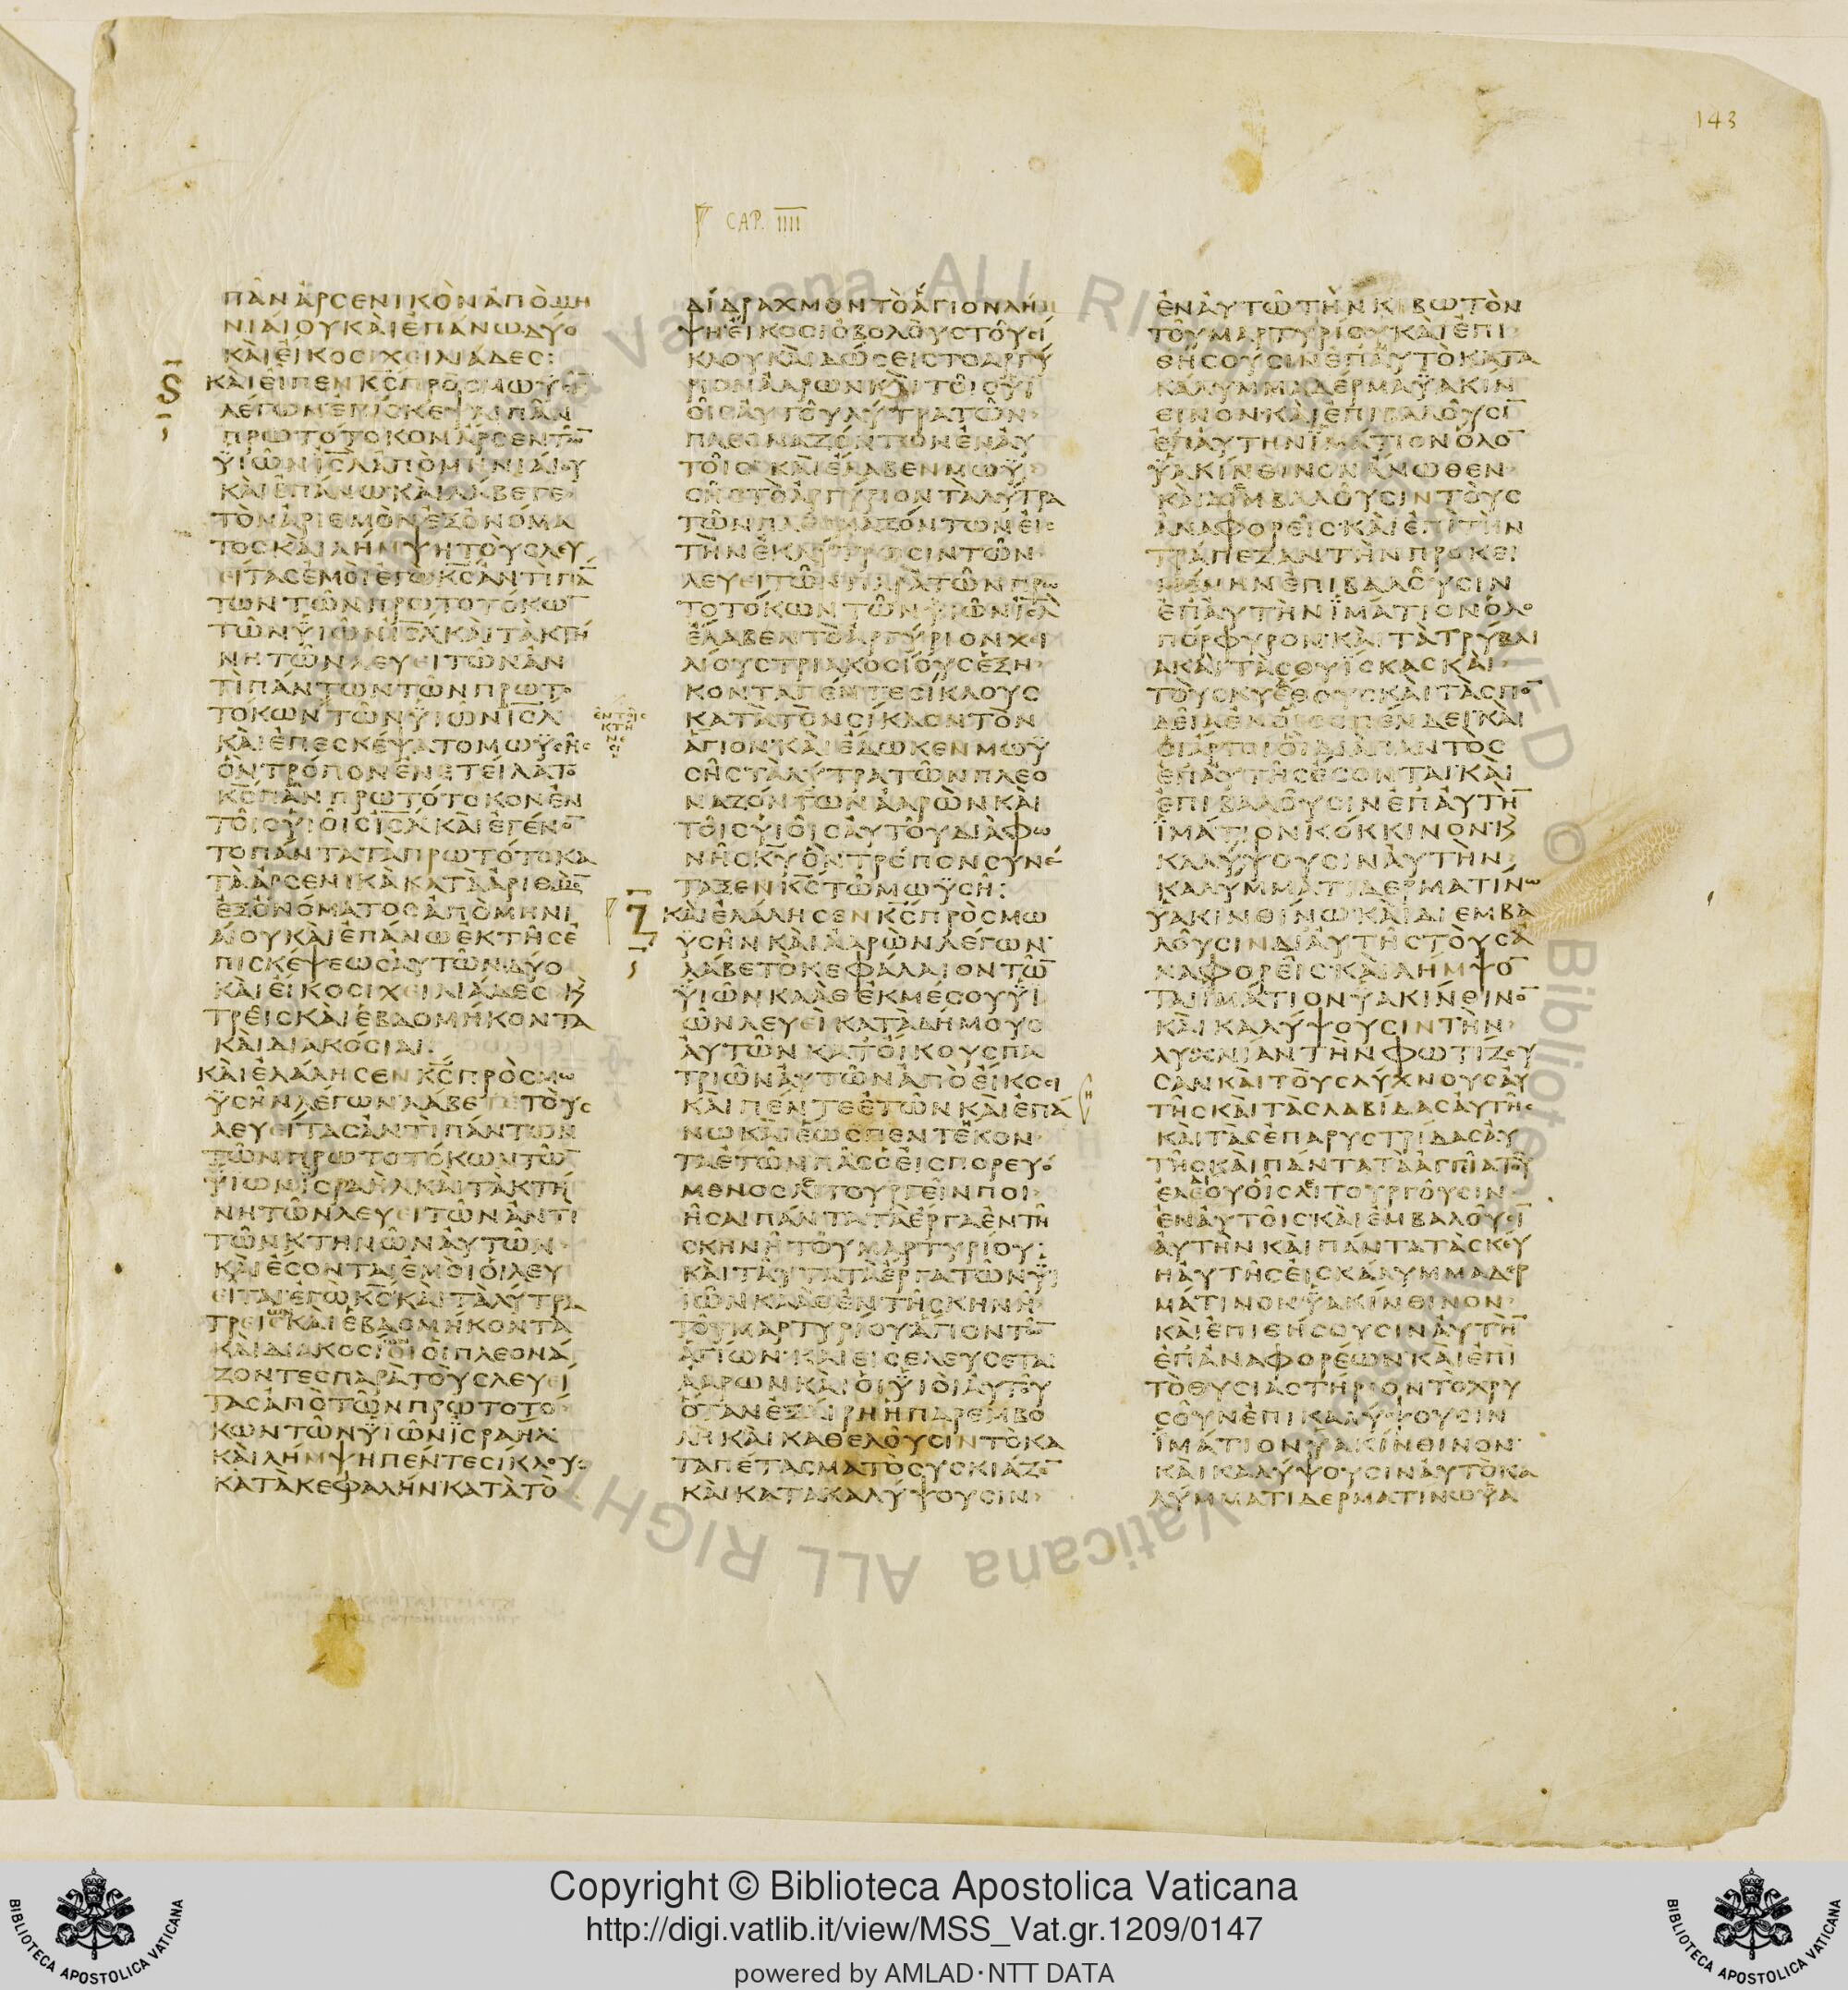 143
CAP. IIII
ΠΑΝ ΑΡΣΕΝΙΚΟΝ ΑΠΟ ΜΗ
ΝΙΑΙΟΥ ΚΑΙ ΕΠΑΝΩ ΔΥΟ
ΚΑΙ ΕΙΚΟΣΙ ΧΕΙΛΙΑΔΕΣ:
ΚΑΙ ΕΙΠΕΝ ΚΣ ΠΡΟΣ ΜΩΥΣΗ̅
ΛΕΓΩΝ ΕΠΙΣΚΕΨΑΙ ΠΑΝ
ΠΡΩΤΟΤΟΚΟΝ ΑΡΣΕΝ ΤΩ̅
ΫΙΩΝ ΙΣΛ ΑΠΟ ΜΗΝΙΑΙΟΥ
ΚΑΙ ΕΠΑΝΩ ΚΑΙ ΛΑΒΕΤΕ
ΤΟΝ ΑΡΙΘΜΟΝ ΕΞ ΟΝΟΜΑ
ΤΟΣ ΚΑΙ ΛΗΜΨΗ ΤΟΥΣ ΛΕΥ
ΕΙΤΑΣ ΕΜΟΙ ΕΓΩ ΚΣ ΑΝΤΙ ΠΑ̅
ΤΩΝ ΤΩΝ ΠΡΩΤΟΤΟΚΩ̅
ΤΩΝ ΫΙΩΝ ΙΣΛ ΚΑΙ ΤΑ ΚΤΗ
ΝΗ ΤΩΝ ΛΕΥΕΙΤΩΝ ΑΝ
ΤΙ ΠΑΝΤΩΝ ΤΩΝ ΠΡΩΤΟ
ΤΟΚΩΝ ΤΩΝ ΫΙΩΝ ΙΣΛ
ΕΝ ΤΟΙΣ
ΚΤΗ
ΝΕ
ΣΙ
ΚΑΙ ΕΠΕΣΚΕΨΑΤΟ ΜΩΥΣΗΣ
ΟΝ ΤΡΟΠΟΝ ΕΝΕΤΕΙΛΑΤΟ
ΚΣ ΠΑΝ ΠΡΩΤΟΤΟΚΟΝ ΕΝ
ΤΟΙΣ ΫΙΟΙΣ ΙΣΛ ΚΑΙ ΕΓΕΝΟ̅
ΤΟ ΠΑΝΤΑ ΤΑ ΠΡΩΤΟΤΟΚΑ
ΤΑ ΑΡΣΕΝΙΚΑ ΚΑΤΑ ΑΡΙΘΜΟ̅
ΕΞ ΟΝΟΜΑΤΟΣ ΑΠΟ ΜΗΝΙ
ΑΙΟΥ ΚΑΙ ΕΠΑΝΩ ΕΚ ΤΗΣ Ε
ΠΙΣΚΕΨΕΩΣ ΑΥΤΩΝ ΔΥΟ
ΚΑΙ ΕΙΚΟΣΙ ΧΕΙΛΙΑΔΕΣ Κ
ΤΡΕΙΣ ΚΑΙ ΕΒΔΟΜΗΚΟΝΤΑ
ΚΑΙ ΔΙΑΚΟΣΙΑΙ:
ΚΑΙ ΕΛΑΛΗΣΕΝ ΚΣ ΠΡΟΣ ΜΩ
ΫΣΗΝ ΛΕΓΩΝ ΛΑΒΕ ΤΟΥΣ
ΛΕΥΕΙΤΑΣ ΑΝΤΙ ΠΑΝΤΩΝ
ΤΩΝ ΠΡΩΤΟΤΟΚΩΝ ΤΩ̅
ΫΙΩΝ ΙΣΡΑΗΛ ΚΑΙ ΤΑ ΚΤΗ
ΝΗ ΤΩΝ ΛΕΥΕΙΤΩΝ ΑΝΤΙ
ΤΩΝ ΚΤΗΝΩΝ ΑΥΤΩΝ
ΚΑΙ ΕΣΟΝΤΑΙ ΕΜΟΙ ΟΙ ΛΕΥ
ΕΙΤΑΙ ΕΓΩ ΚΣ ΚΑΙ ΤΑ ΛΥΤΡΑ
ΤΡΕΙΣ ΚΑΙ ΕΒΔΟΜΗΚΟΝΤΑ
ΚΑΙ ΔΙΑΚΟΣΙΟΙ ΟΙ ΠΛΕΟΝΑ
ΖΟΝΤΕΣ ΠΑΡΑ ΤΟΥΣ ΛΕΥΕΙ
ΤΑΣ ΑΠΟ ΤΩΝ ΠΡΩΤΟΤΟ
ΚΩΝ ΤΩΝ ΫΙΩΝ ΙΣΡΑΗΛ
ΚΑΙ ΛΗΜΨΗ ΠΕΝΤΕ ΣΙΚΛΟΥΣ
ΚΑΤΑ ΚΕΦΑΛΗΝ ΚΑΤΑ ΤΟ
ΔΙΔΡΑΧΜΟΝ ΤΟ ΑΓΙΟΝ ΛΗΜ
ΨΗ ΕΙΚΟΣΙ ΟΒΟΛΟΥΣ ΤΟΥ ΣΙ
ΚΛΟΥ ΚΑΙ ΔΩΣΕΙΣ ΤΟ ΑΡΓΥ
ΡΙΟΝ ΑΑΡΩΝ ΚΑΙ ΤΟΙΣ ΫΙ
ΟΙΣ ΑΥΤΟΥ ΛΥΤΡΑ ΤΩΝ
ΠΛΕΟΝΑΖΟΝΤΩΝ ΕΝ ΑΥ
ΤΟΙΣ ΚΑΙ ΕΛΑΒΕΝ ΜΩΫ
ΣΗΣ ΤΟ ΑΡΓΥΡΙΟΝ ΤΑ ΛΥΤΡΑ
ΤΩΝ ΠΛΕΟΝΑΖΟΝΤΩΝ ΕΙΣ
ΤΗΝ ΕΚΛΥΤΡΩΣΙΝ ΤΩΝ
ΛΕΥΕΙΤΩΝ ΠΑΡΑ ΤΩΝ ΠΡΩ
ΤΟΤΟΚΩΝ ΤΩΝ ΫΙΩΝ ΙΣΛ
ΕΛΑΒΕΝ ΤΟ ΑΡΓΥΡΙΟΝ ΧΕΙ
ΛΙΟΥΣ ΤΡΙΑΚΟΣΙΟΥΣ ΕΞΗ
ΚΟΝΤΑ ΠΕΝΤΕ ΣΙΚΛΟΥΣ
ΚΑΤΑ ΤΟΝ ΣΙΚΛΟΝ ΤΟΝ
ΑΓΙΟΝ ΚΑΙ ΕΔΩΚΕΝ ΜΩΫ
ΣΗΣ ΤΑ ΛΥΤΡΑ ΤΩΝ ΠΛΕΟ
ΝΑΖΟΝΤΩΝ ΑΑΡΩΝ ΚΑΙ
ΤΟΙΣ ΫΙΟΙΣ ΑΥΤΟΥ ΔΙΑ ΦΩ
ΝΗΣ ΚΥ ΟΝ ΤΡΟΠΟΝ ΣΥΝΕ
ΤΑΞΕΝ ΚΣ ΤΩ ΜΩΫΣΗ:
ΚΑΙ ΕΛΑΛΗΣΕΝ ΚΣ ΠΡΟΣ ΜΩ
ΫΣΗΝ ΚΑΙ ΑΑΡΩΝ ΛΕΓΩΝ
ΛΑΒΕ ΤΟ ΚΕΦΑΛΑΙΟΝ ΤΩ̅
ΫΙΩΝ ΚΑΑΘ ΕΚ ΜΕΣΟΥ ΫΙ
ΩΝ ΛΕΥΕΙ ΚΑΤΑ ΔΗΜΟΥΣ
ΑΥΤΩΝ ΚΑΤ ΟΙΚΟΥΣ ΠΑ
ΤΡΙΩΝ ΑΥΤΩΝ ΑΠΟ ΕΙΚΟΣΙ
ΚΑΙ ΠΕΝΤΕ ΕΤΩΝ ΚΑΙ ΕΠΑ
ΝΩ ΚΑΙ ΕΩΣ ΠΕΝΤΗΚΟΝ
ΤΑ ΕΤΩΝ ΠΑΣ Ο ΕΙΣΠΟΡΕΥΟ
ΜΕΝΟΣ ΛΙΤΟΥΡΓΕΙΝ ΠΟΙ
ΗΣΑΙ ΠΑΝΤΑ ΤΑ ΕΡΓΑ ΕΝ ΤΗ
ΣΚΗΝΗ ΤΟΥ ΜΑΡΤΥΡΙΟΥ:
ΚΑΙ ΤΑΥΤΑ ΤΑ ΕΡΓΑ ΤΩΝ Ϋ
ΙΩΝ ΚΑΑΘ ΕΝ ΤΗ ΣΚΗΝΗ
ΤΟΥ ΜΑΡΤΥΡΙΟΥ ΑΓΙΟΝ ΤΩ̅
ΑΓΙΩΝ ΚΑΙ ΕΙΣΕΛΕΥΣΕΤΑΙ
ΑΑΡΩΝ ΚΑΙ ΟΙ ΫΙΟΙ ΑΥΤΟΥ
ΟΤΑΝ ΕΞΑΙΡΗ Η ΠΑΡΕΜΒΟ
ΛΗ ΚΑΙ ΚΑΘΕΛΟΥΣΙΝ ΤΟ ΚΑ
ΤΑΠΕΤΑΣΜΑ ΤΟ ΣΥΣΚΙΑΖΟ̅
ΚΑΙ ΚΑΤΑΚΑΛΥΨΟΥΣΙΝ
ΕΝ ΑΥΤΩ ΤΗΝ ΚΙΒΩΤΟΝ
ΤΟΥ ΜΑΡΤΥΡΙΟΥ ΚΑΙ ΕΠΙ
ΘΗΣΟΥΣΙΝ ΕΠ ΑΥΤΟ ΚΑΤΑ
ΚΑΛΥΜΜΑ ΔΕΡΜΑ ΫΑΚΙΝ
ΘΙΝΟΝ ΚΑΙ ΕΠΙΒΑΛΟΥΣΙ̅
ΕΠ ΑΥΤΗΝ ΙΜΑΤΙΟΝ ΟΛΟ̅
ΫΑΚΙΝΘΙΝΟΝ ΑΝΩΘΕΝ
ΚΑΙ ΔΙΕΜΒΑΛΟΥΣΙΝ ΤΟΥΣ
ΑΝΑΦΟΡΕΙΣ ΚΑΙ ΕΠΙ ΤΗΝ
ΤΡΑΠΕΖΑΝ ΤΗΝ ΠΡΟΚΕΙ
ΜΕΝΗΝ ΕΠΙΒΑΛΟΥΣΙΝ
ΕΠ ΑΥΤΗΝ ΙΜΑΤΙΟΝ ΟΛΟ
ΠΟΡΦΥΡΟΝ ΚΑΙ ΤΑ ΤΡΥΒΛΙ
Α ΚΑΙ ΤΑΣ ΘΥΪΣΚΑΣ ΚΑΙ
ΤΟΥΣ ΚΥΑΘΟΥΣ ΚΑΙ ΤΑ ΣΠΟ̅
ΔΕΙΑ ΕΝ ΟΙΣ ΣΠΕΝΔΕΙ ΚΑΙ
ΟΙ ΑΡΤΟΙ ΟΙ ΔΙΑ ΠΑΝΤΟΣ
ΕΠ ΑΥΤΗΣ ΕΣΟΝΤΑΙ ΚΑΙ
ΕΠΙΒΑΛΟΥΣΙΝ ΕΠ ΑΥΤΗ̅
ΙΜΑΤΙΟΝ ΚΟΚΚΙΝΟΝ Κ
ΚΑΛΥΨΟΥΣΙΝ ΑΥΤΗΝ
ΚΑΛΥΜΜΑΤΙ ΔΕΡΜΑΤΙΝΩ
ΫΑΚΙΝΘΙΝΩ ΚΑΙ ΔΙΕΜΒΑ
ΛΟΥΣΙΝ ΔΙ ΑΥΤΗΣ ΤΟΥΣ Α
ΝΑΦΟΡΕΙΣ ΚΑΙ ΛΗΜΨΟ̅
ΤΑΙ ΙΜΑΤΙΟΝ ΫΑΚΙΝΘΙΝΟ̅
ΚΑΙ ΚΑΛΥΨΟΥΣΙΝ ΤΗΝ
ΛΥΧΝΙΑΝ ΤΗΝ ΦΩΤΙΖΟΥ
ΣΑΝ ΚΑΙ ΤΟΥΣ ΛΥΧΝΟΥΣ ΑΥ
ΤΗΣ ΚΑΙ ΤΑΣ ΛΑΒΙΔΑΣ ΑΥΤΗΣ
ΚΑΙ ΤΑΣ ΕΠΑΡΥΣΤΡΙΔΑΣ ΑΥ
ΤΗΣ ΚΑΙ ΠΑΝΤΑ ΤΑ ΑΓΓΙΑ ΤΟΥ
ΕΛΑΙΟΥ ΟΙΣ ΛΙΤΟΥΡΓΟΥΣΙΝ
ΕΝ ΑΥΤΟΙΣ ΚΑΙ ΕΜΒΑΛΟΥΣΙ̅
ΑΥΤΗΝ ΚΑΙ ΠΑΝΤΑ ΤΑ ΣΚΕΥ
Η ΑΥΤΗΣ ΕΙΣ ΚΑΛΥΜΜΑ ΔΕΡ
ΜΑΤΙΝΟΝ ΫΑΚΙΝΘΙΝΟΝ
ΚΑΙ ΕΠΙΘΗΣΟΥΣΙΝ ΑΥΤΗ̅
ΕΠ ΑΝΑΦΟΡΕΩΝ ΚΑΙ ΕΠΙ
ΤΟ ΘΥΣΙΑΣΤΗΡΙΟΝ ΤΟ ΧΡΥ
ΣΟΥΝ ΕΠΙΚΑΛΥΨΟΥΣΙΝ
ΙΜΑΤΙΟΝ ΫΑΚΙΝΘΙΝΟΝ
ΚΑΙ ΚΑΛΥΨΟΥΣΙΝ ΑΥΤΟ ΚΑ
ΛΥΜΜΑΤΙ ΔΕΡΜΑΤΙΝΩ ΫΑ
Copyright © Biblioteca Apostolica Vaticana
http://digi.vatlib.it/view/MSS_Vat.gr.1209/0147
powered by AMLAD·NTT DATA
BIBLIOTECA APOSTOLICA VATICANA
BIBLIOTECA APOSTOLICA VATICANA